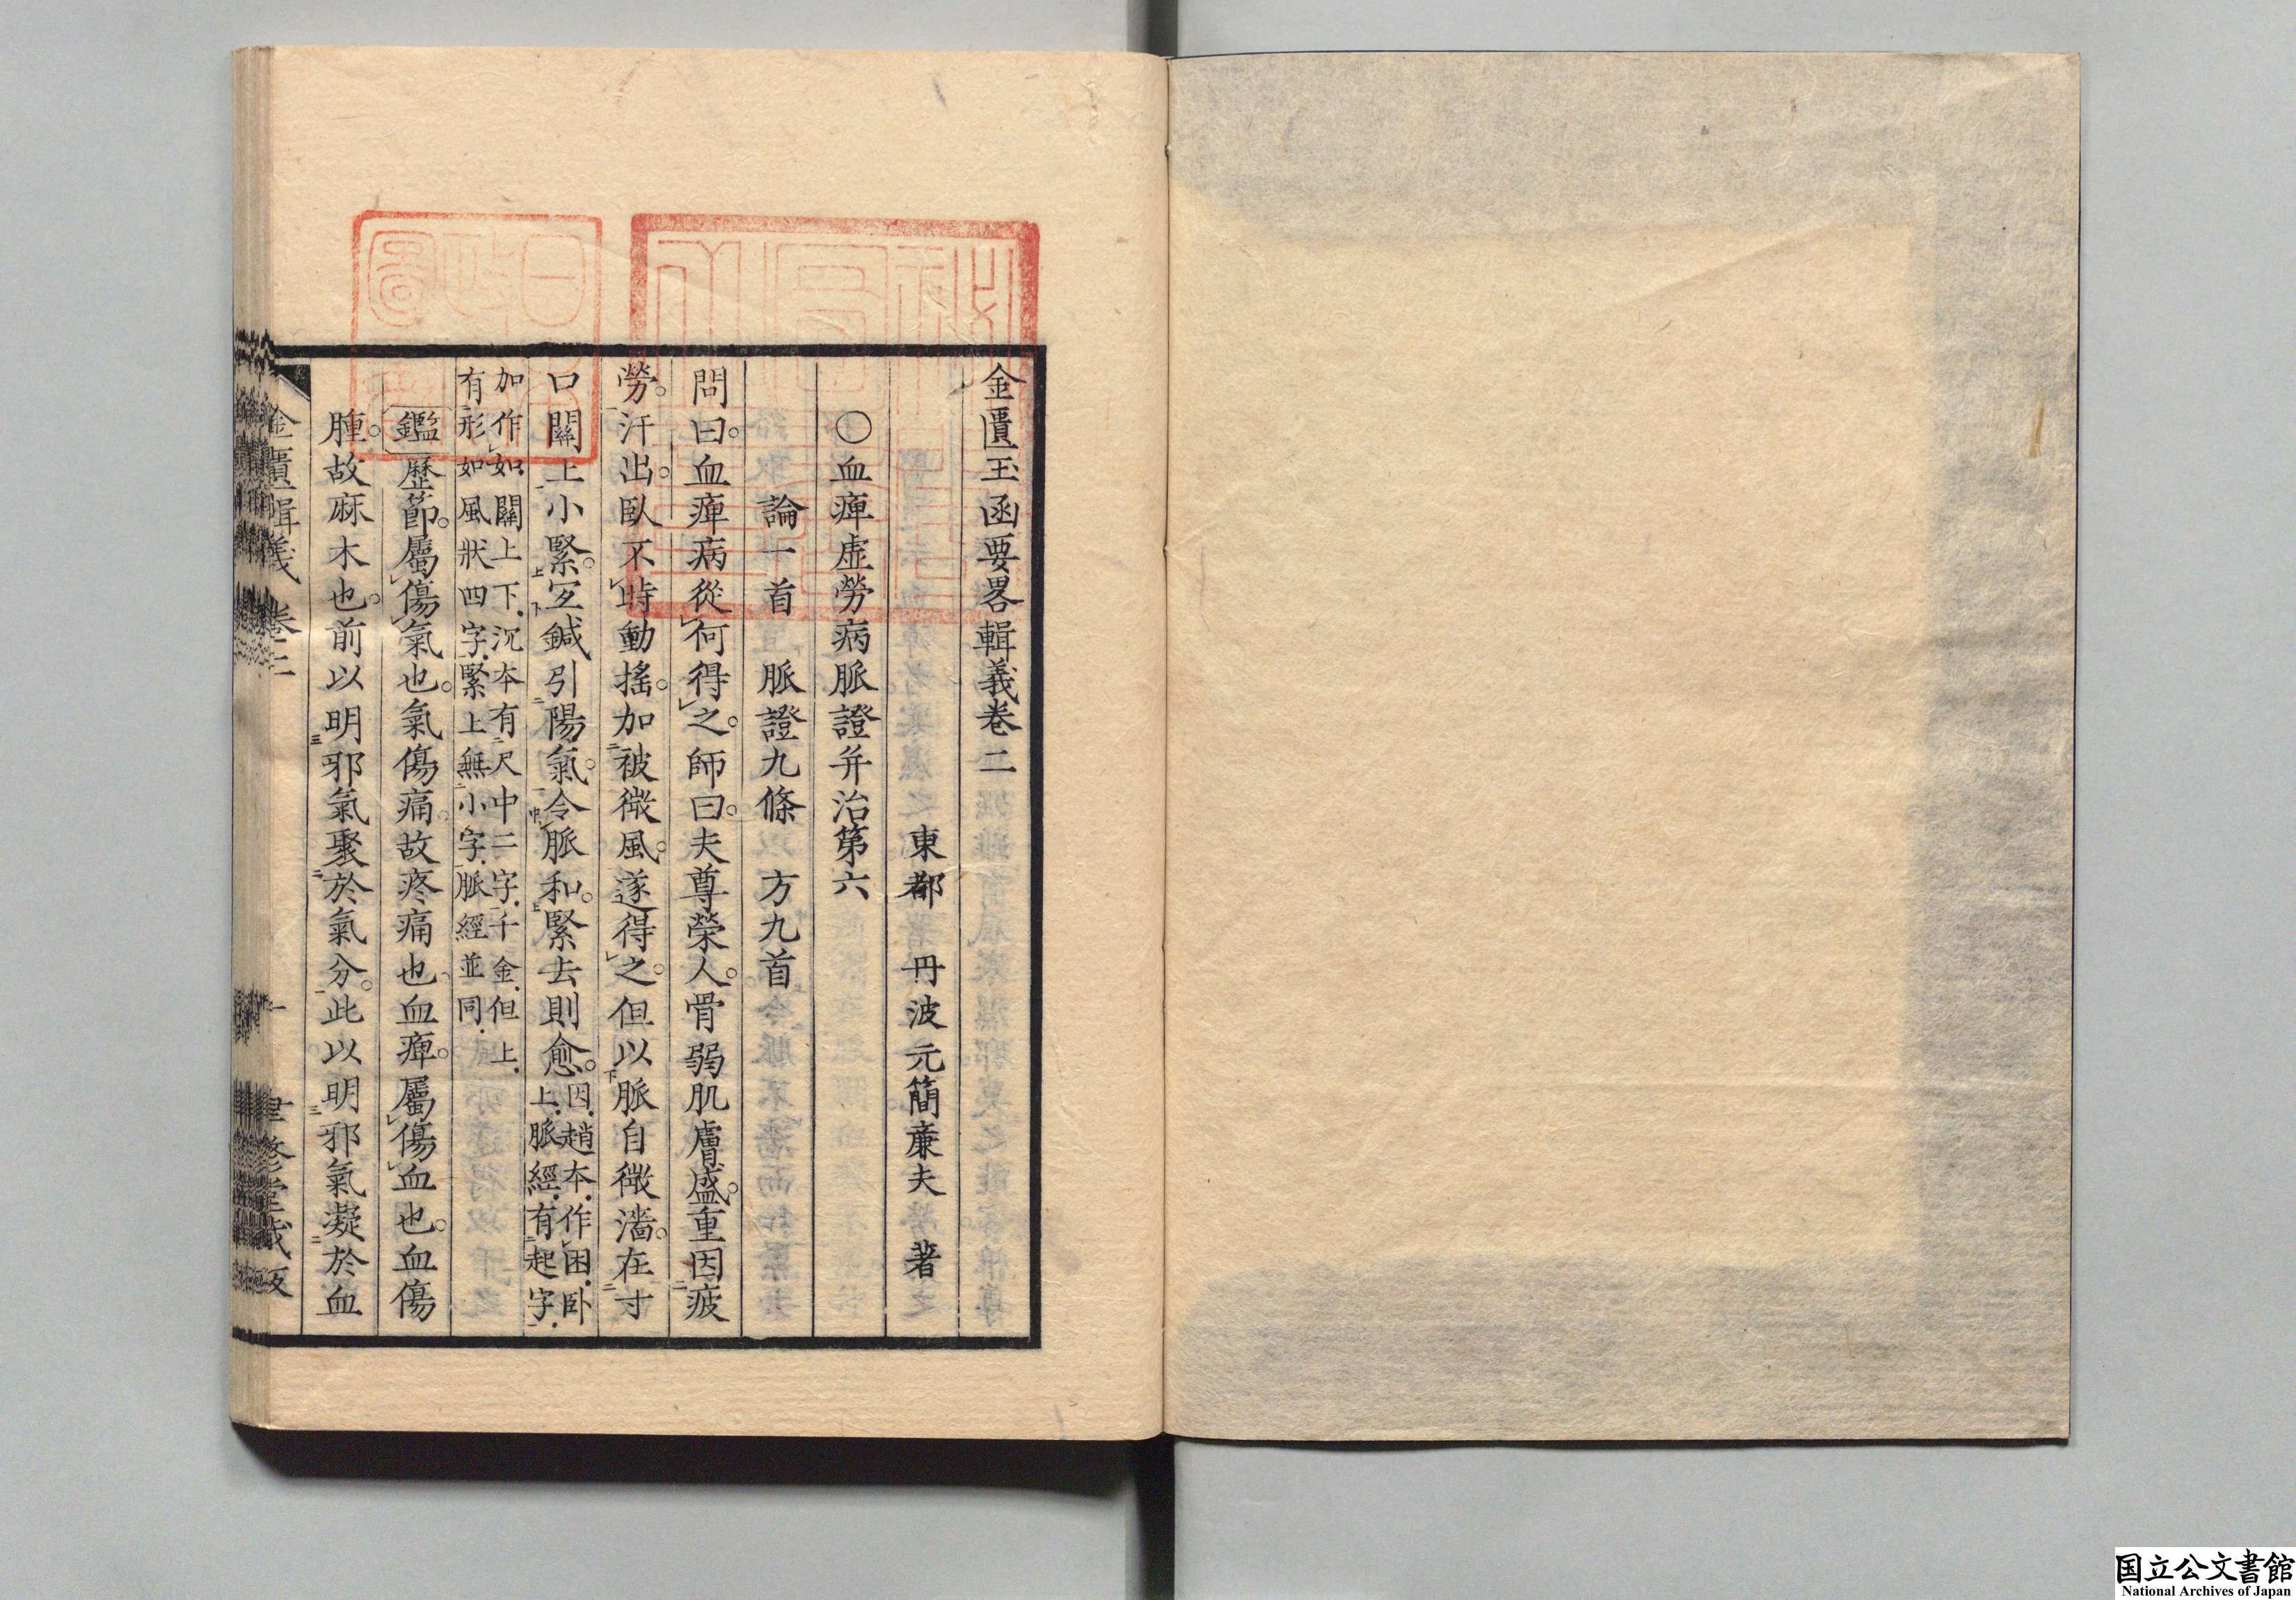 金匱玉函要畧輯義卷二
東都 丹波元簡廉夫 著
○血痺虛勞病脈證并治第六
論一首 脈證九條 方九首
問曰。血痺病從何得之。師曰。夫尊榮人。骨弱肌膚盛。重因疲
勞。汗出。臥不時動搖。加被微風。遂得之。但以脈自微濇。在寸
口關上小緊。宐鍼引陽氣。令脈和。緊去則愈。因.趙本.作困.卧
上.脈經.有起字.
加作如.關上下.沉本有尺中二字.千金.但上.
有形如風狀四字.緊上無小字.脈經並同.
鑑 歷節。屬傷氣也。氣傷痛。故疼痛也。血痺。屬傷血也。血傷
腫。故麻木也。前以明邪氣聚於氣分。此以明邪氣凝於血
金匱輯義 卷二 一 聿修堂藏版
国立公文書館
National Archives of Japan